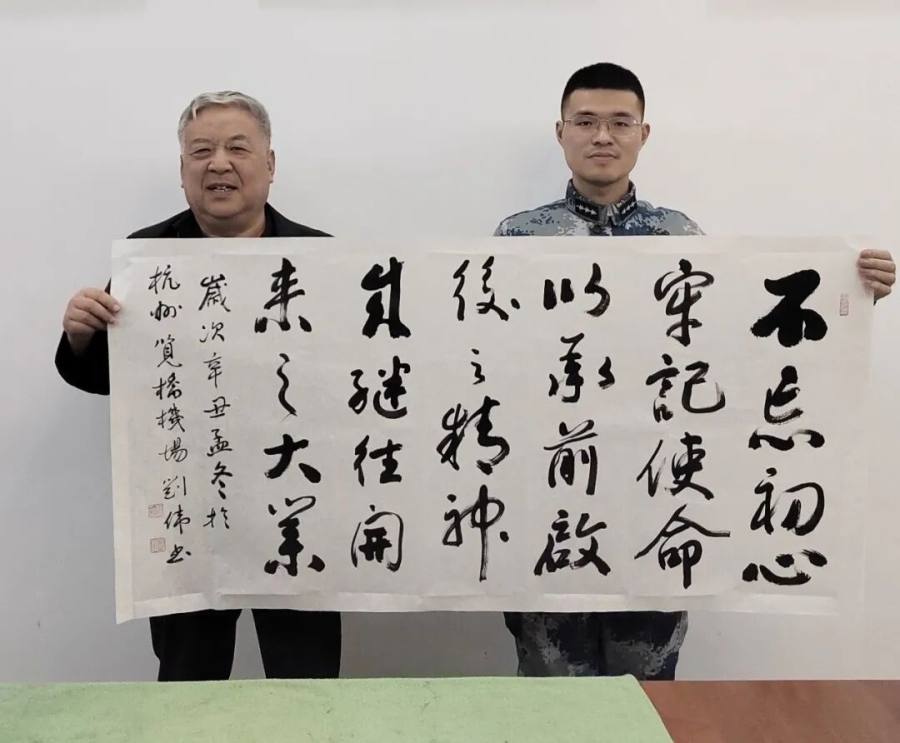 不忘初心
牢記使命
以承前啟
後之精神
成继往開
来之大業
歲次辛丑孟冬於
杭州筧橋機場劉伟书